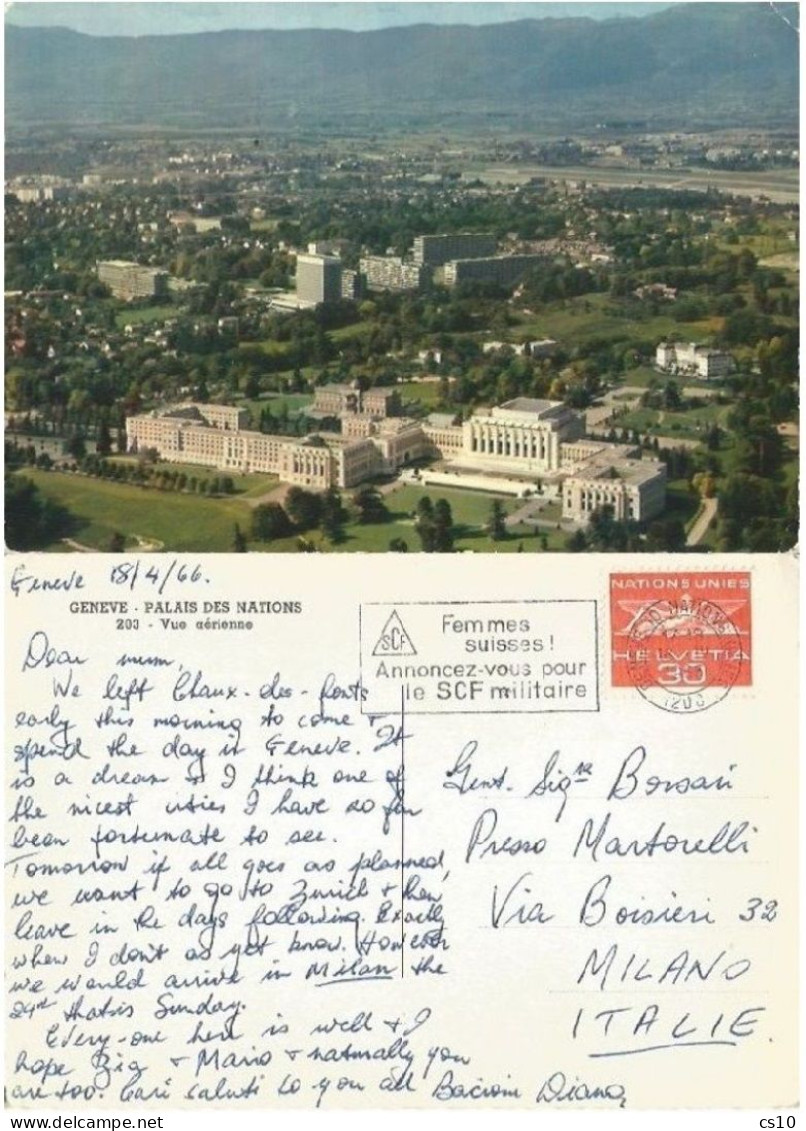 Geneve 18/4/66.
GENEVE - PALAIS DES NATIONS
203 - Vue aérienne
Dear mum,
We left Chaux-des-fonts
early this morning to come +
spend the day in Geneve. It
is a dream + I think one of
the nicest cities I have so far
been fortunate to see.
Tomorrow if all goes as planned,
we want to go to Zurich + then
leave in the days following. Exactly
when I don't as yet know. However
we would arrive in Milan the
24th thats Sunday.
Every-one here is well + I
hope + Mario + naturally you
are too. Cari saluti to you all Bacioni Diana
SCF
Femmes
suisses!
Annoncez-vous pour
le SCF militaire
NATIONS UNIES
HELVETIA
30
1203
Gent. Sig.ra Borsari
Presso Martorelli
Via Boisieri 32
MILANO
ITALIE
cs10